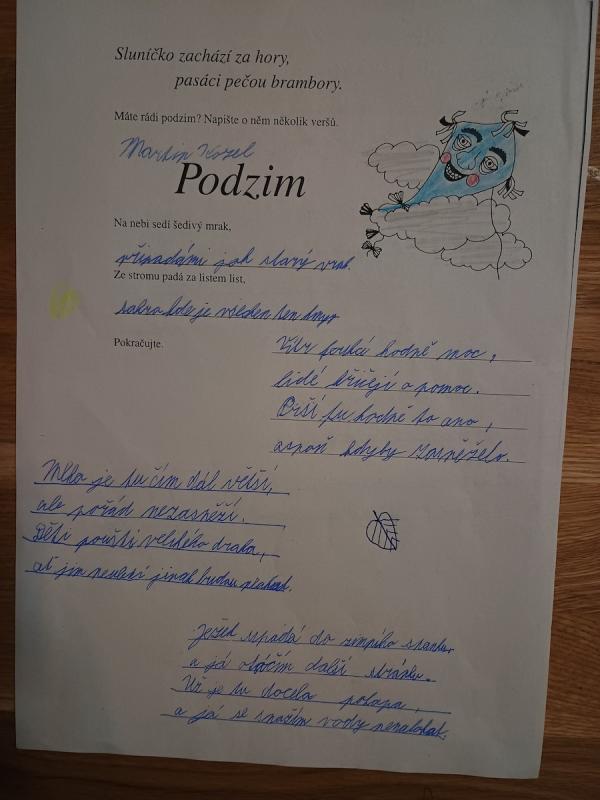 Sluníčko zachází za hory,
pasáci pečou brambory.
Máte rádi podzim? Napište o něm několik veršů.
Martin Kozel
Podzim
Na nebi sedí šedivý mrak,
připadámi jak starý vrak.
Ze stromu padá za listem list,
sakra kde je všeden ten
Pokračujte.
Vítr fouká hodně moc,
lidé křičejí o pomoc.
Prší tu hodně to ano,
aspoň kdyby zasněželo.
Mlha je tu čím dál větší,
ale pořád nezasněží.
Děti pouští velikého draka,
ať jim neuletí jinak budou plakat.
Ježek upadá do zimního spánku,
a já otáčím další stránku.
Už je tu docela potopa,
a já se snažím vody nenalokat.